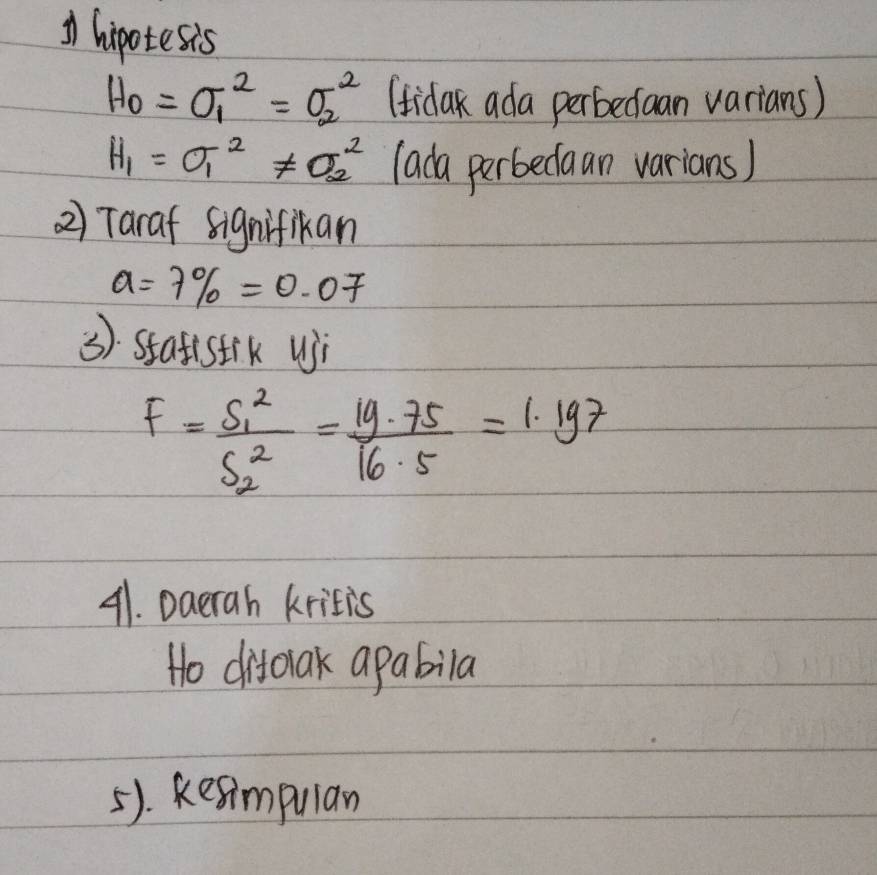 1) hipotesis
H0 = σ1² = σ2² (tidak ada perbedaan varians)
H1 = σ1² ≠ σ2² (ada perbedaan varians)
2) Taraf signifikan
a = 7% = 0.07
3). Statistik Uji
F = S1²/S2² = 19.75/16.5 = 1.197
4). Daerah kritis
Ho ditolak apabila
5). Kesimpulan